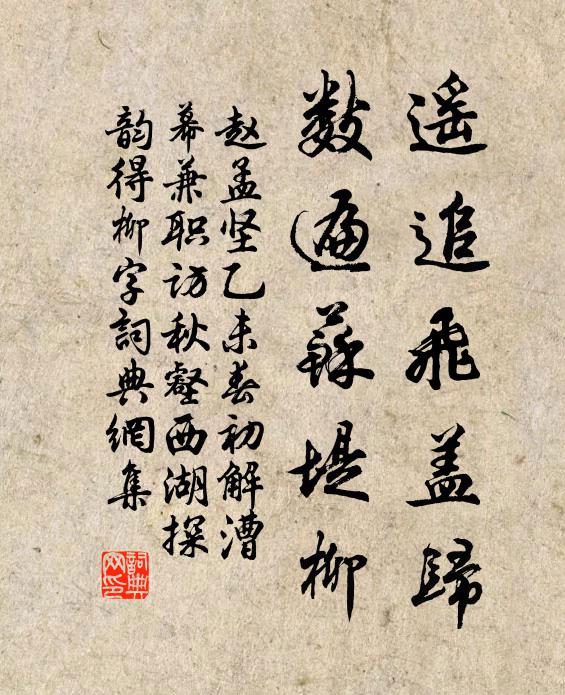 遥追飛盖歸
数遍蘇堤柳
赵孟坚乙未春初解漕
幕兼职访秋壑西湖探
韵得柳字詞典網集
詞典
网印